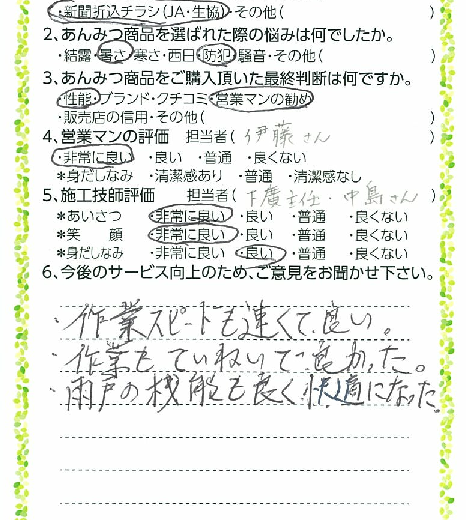 ・新聞折込チラシ(JA・生協)・その他(　)
2,あんみつ商品を選ばれた際の悩みは何でしたか。
・結露・暑さ・寒さ・西日・防犯・騒音・その他(　)
3,あんみつ商品をご購入頂いた最終判断は何ですか。
・性能・ブランド・クチコミ・営業マンの勧め
・販売店の信用・その他(　)
4,営業マンの評価　担当者(伊藤さん)
・非常に良い　・良い　・普通　・良くない
*身だしなみ　・清潔感あり　・普通　・清潔感なし
5,施工技師評価　担当者(下廣主任・中島さん)
*あいさつ　・非常に良い　・良い　・普通　・良くない
*笑　顔　・非常に良い　・良い　・普通　・良くない
*身だしなみ　・非常に良い　・良い　・普通　・良くない
6,今後のサービス向上のため、ご意見をお聞かせ下さい。
・作業スピードも速くて良い。
・作業もていねいで良かった。
・雨戸の機能も良く快適になった。